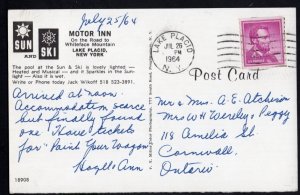 July 25/64
SUN AND SKI
MOTOR INN
On the Road to
Whiteface Mountain
LAKE PLACID,
NEW YORK
The pool at the Sun & Ski is lovely lighted -
Heated and Musical - and it Sparkles in the Sun-
light - Also in
Write or Phone today Jack Wikoff 518 523-3891.
Arrived at noon.
Accommodation scarce
but finally found
one. Have tickets
for "Paint Your Wagon"
Ann
18908
LAKE PLACID
JUL 26
PM
1964
N.Y.
Post Card
Mr & Mrs. A. E. Atchison
Mrs W H Wereley & Peggy
118 Amelia St
Cornwall,
Ontario